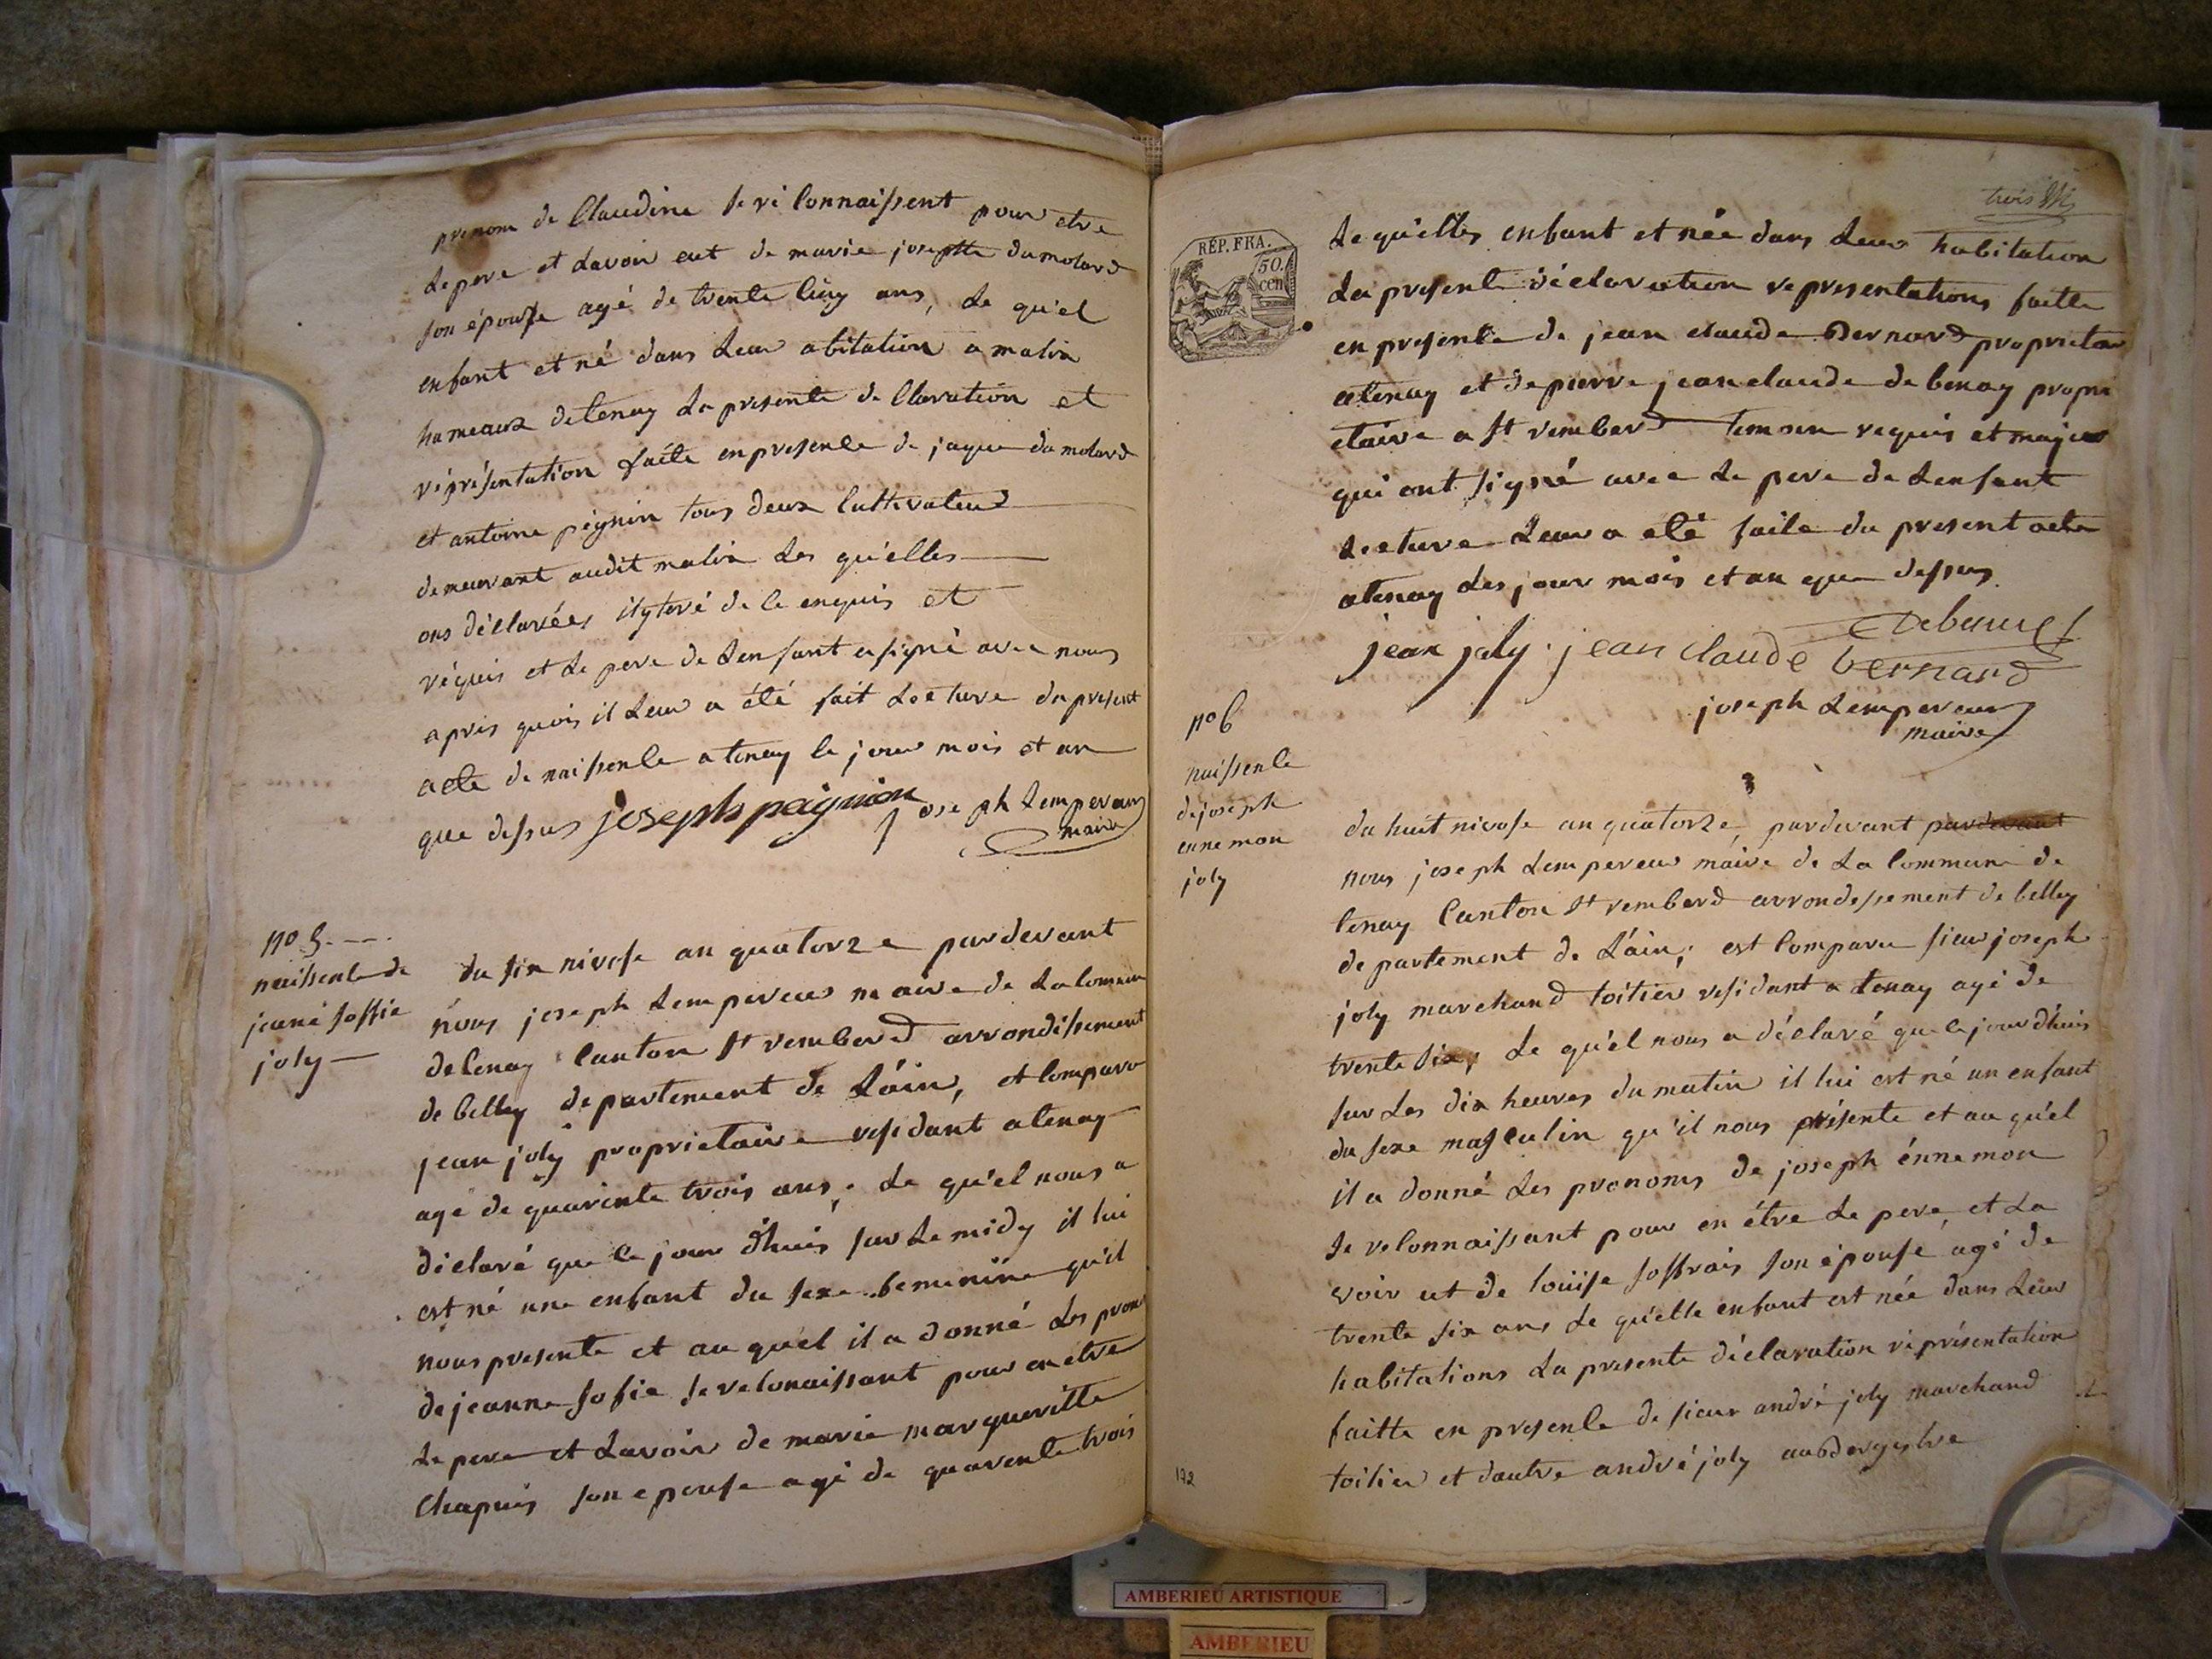 prenom de Claudine se reconnaissent pour etre
le pere et lavoir eut de marie josephte dumolard
son épouse agé de trente cinq ans, le qu'el
enfant et né dans leur abitation a malix
hameaux de tenay la presente declaration et
réprésentation faite en presence de jaque dumolard
et antoine peignin tous deux cultivateur
demeurant audit malix les qu'elles
ons déclarées de ce enquis et
réquis et le pere de lenfant a signé avec nous
apres quois il leur a été fait lecture du present
acte de naissence a tenay le jour mois et an
que dessus joseph peignion joseph Lempereur
maire
no 5.
naissence de
jeane soffie
joly
du six nivose an quatorze pardevant
nous joseph Lempereur maire de la commun
de tenay canton st remberd arrondissement
de belley departement de L'áin, et comparu
jean joly proprietaire residant a tenay
agé de quarente trois ans, le qu'el nous a
déclaré que ce jour d'huis sur le midy il lui
est né une enfant du sexe feminine qu'il
nous presente et au qu'el il a donné les prenom
de jeanne sofie se reconaissant pour en etre
le pere et lavoir de marie margueritte
Chapuis son epouse agé de quarente trois
trois
RÉP. FRA.
50.
cen
le qu'elles enfant et née dans leur habitation
la presente déclaration representations faitte
en presente de jean claude Bernard proprietair
a tenay et de pierre jean claude debenay propri
etaire a st remberd temoin requis et majeur
qui ont signé avec le pere de lenfant
lecture leur a été faite du present acte
a tenay les jour mois et an que dessus
Debenay
jean joly. jean claude bernard
joseph Lempereur
maire
no 6
naissence
de joseph
ennemon
joly
du huit nivose an quatorze, pardevant pardevant
nous joseph Lempereur maire de La commune de
tenay canton st remberd arrondessement de belley
departement de L'áin; est comparu sieur joseph
joly marchand toitier residant a tenay agé de
trente six, le qu'el nous a déclaré que ce jour d'huis
sur les dix heures du matin il lui est né un enfant
du sexe masculin qu'il nous présente et au qu'el
il a donné les prenoms de joseph énnemon
se reconnaissant pour en étre le pere et la
voir ut de loüise soffrais son épouse agé de
trente six ans le qu'elle enfant est née dans leur
habitations la presente déclaration réprésentation
faitte en presence de sieur andré joly marchand
toitier et dautre andré joly aubergystre
172
AMBERIEU ARTISTIQUE
AMBERIEU